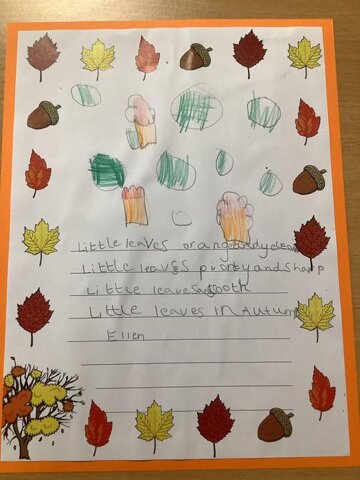 Little leaves orang and yclean
Little leaves piontyandsharp
Little leaves smooth
Little leaves in Autumn
Ellen